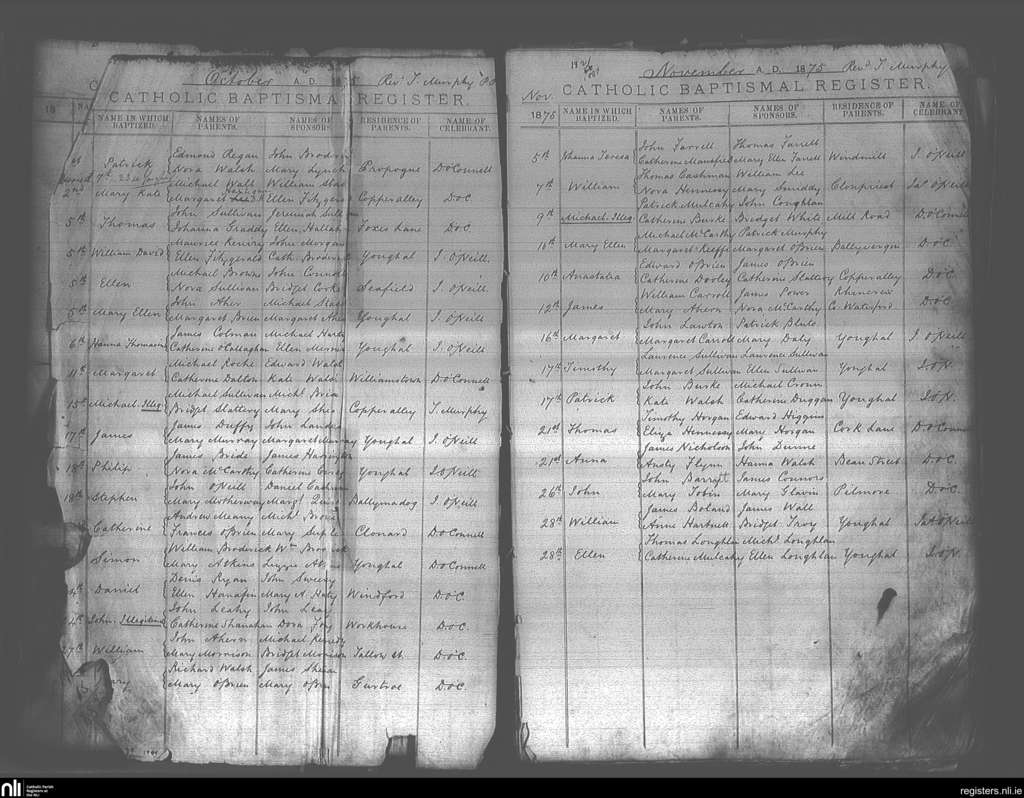 October A.D. Rev. T. Murphy P.P.
CATHOLIC BAPTISMAL REGISTER.
18
NAME IN WHICH BAPTIZED. NAMES OF PARENTS. NAMES OF SPONSORS. RESIDENCE OF PARENTS. NAME OF CELEBRANT.
Edmond Regan John Broderick
Patrick Nora Walsh Mary Lynch Propogue D. O'Connell
Michael Wall William
2nd Mary Kate Margaret Ellen Fitzgerald Copperalley D.O'C.
John Sullivan Jeremiah Sullivan
5th Thomas Johanna Graddy Ellen Hallahan Foxes Lane D.O'C.
Maurice Keniry John Morgan
5th William David Ellen Fitzgerald Cath. Broderick Youghal J. O'Neill.
Michael Browne John Connolly
5th Ellen Nora Sullivan Bridget Corke Seafield J. O'Neill.
John Aher Michael
5th Mary Ellen Margaret Brien Margaret Aher Youghal J. O'Neill
James Colman Michael Harty
6th Hanna Thomasina Catherine O'Callaghan Ellen Youghal J. O'Neill
Michael Roche Edward Walsh
11th Margaret Catherine Dalton Kate Walsh Williamstown D. O'Connell
Michael Sullivan Michl. Brien
15th Michael. Illeg. Bridget Slattery Mary Shea Copperalley T. Murphy
James Duffy John Landers
17th James Mary Murray Margaret Murray Youghal J. O'Neill
James Bride James Harington
18th Philip Nora McCarthy Catherine Youghal J. O'Neill
John O'Neill Daniel Cashman
18th Stephen Mary Motherway Margt. Ballymadog J. O'Neill
Andrew Meany Michl. Browne
Catherine Frances O'Brien Mary Clonard D. O'Connell
William Broderick Wm. Broderick
Simon Mary Atkins Lizzie Atkins Youghal D. O'Connell
Denis Ryan John Sweeny
Daniel Ellen Hanafin Mary A. Windford D.O'C.
John Leahy John Leahy
John. Illegitimate Catherine Shanahan Dora Foy Workhouse D.O'C.
John Ahern Michael Kennedy
27th William Mary Morrison Bridget Morrison Tallow St. D.O'C.
Richard Walsh James Sheean
Mary Mary O'Brien Mary O'Brien Gurtroe D.O'C.
November A.D. 1875 Revd. T. Murphy
CATHOLIC BAPTISMAL REGISTER.
Nov. 1875
NAME IN WHICH BAPTIZED. NAMES OF PARENTS. NAMES OF SPONSORS. RESIDENCE OF PARENTS. NAME OF CELEBRANT.
John Farrell Thomas Farrell
5th Hanna Teresa Catherine Mansfield Mary Ellen Farrell Windmill J. O'Neill
Thomas Cashman William Lee
7th William Nora Hennessy Mary Smiddy Clonpriest Jas. O'Neill
Patrick Mulcahy John Coughlan
9th Michael. Illeg. Catherine Burke Bridget White Mill Road D. O'Connell
Michael McCarthy Patrick Murphy
10th Mary Ellen Margaret Keeffe Margaret O'Brien Ballyvergan D.O'C.
Edward O'Brien James O'Brien
10th Anastatia Catherine Dooley Catherine Slattery Copperalley D.O'C.
William Carroll James Power Rhincrew
12th James Mary Ahern Nora McCarthy Co. Waterford D.O'C.
John Lawton Patrick Blute
16th Margaret Margaret Carroll Mary Daly Youghal J. O'Neill
Laurence Sullivan Laurence Sullivan
17th Timothy Margaret Sullivan Ellen Sullivan Youghal J.O'N.
John Burke Michael Cronin
17th Patrick Kate Walsh Catherine Duggan Youghal J.O'N.
Timothy Horgan Edward Higgins
21st Thomas Eliza Hennessy Mary Horgan Cork Lane D. O'Connell
James Nicholson John Dunne
21st Anna Ansty Flynn Hanna Walsh Bean Street D.O'C.
John Barrett James Connors
26th John Mary Tobin Mary Glavin Pilmore D.O'C.
James Boland James Wall
28th William Anne Hartnett Bridget Youghal Jas. O'Neill
Thomas Loughlan Michl. Loughlan
28th Ellen Catherine Mulcahy Ellen Loughlan Youghal J.O'N.
nli Catholic Parish Registers at the NLI
registers.nli.ie